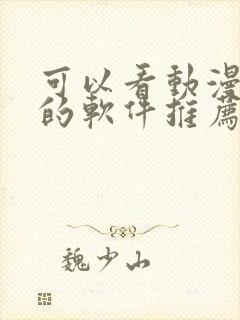 可以看動漫
的軟件推薦
魏少山